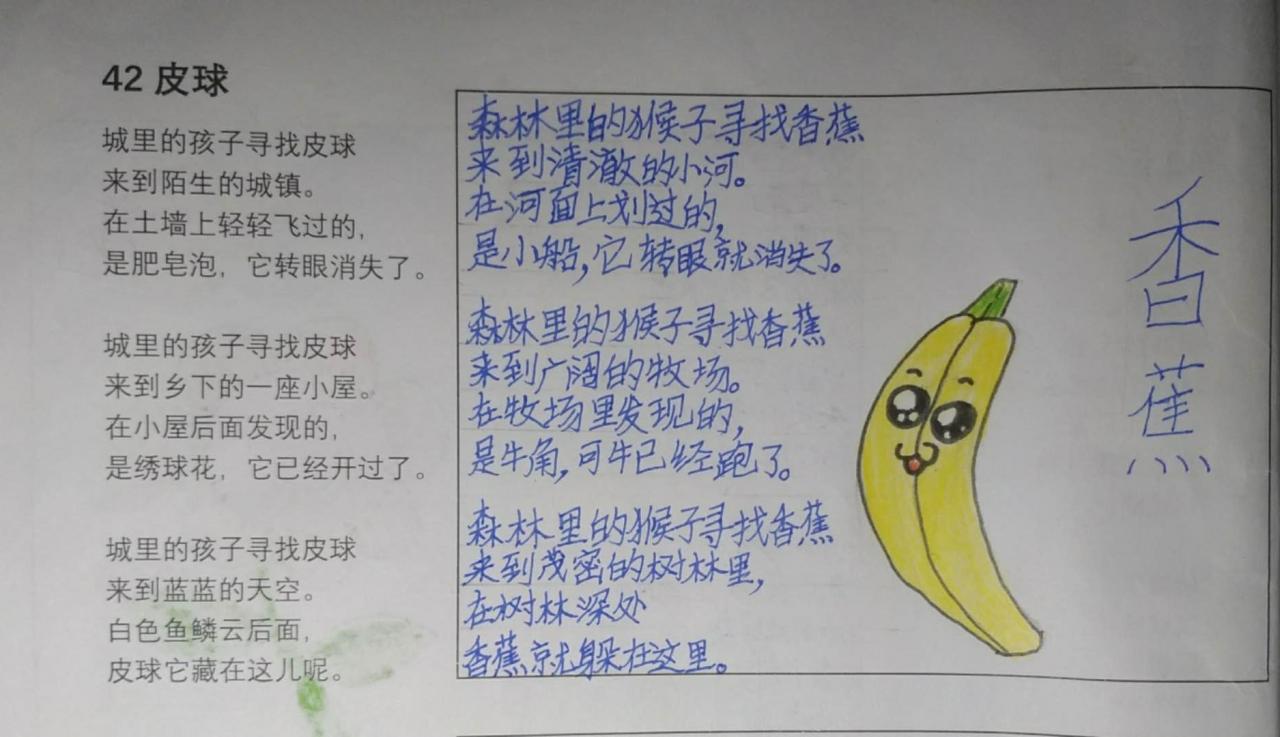 42 皮球
城里的孩子寻找皮球
来到陌生的城镇。
在土墙上轻轻飞过的,
是肥皂泡，它转眼消失了。
城里的孩子寻找皮球
来到乡下的一座小屋。
在小屋后面发现的,
是绣球花，它已经开过了。
城里的孩子寻找皮球
来到蓝蓝的天空。
白色鱼鳞云后面,
皮球它藏在这儿呢。
森林里的猴子寻找香蕉
来到清澈的小河。
在河面上划过的,
是小船,它转眼就消失了。
森林里的猴子寻找香蕉
来到广阔的牧场。
在牧场里发现的,
是牛角,可牛已经跑了。
森林里的猴子寻找香蕉
来到茂密的树林里,
在树林深处
香蕉就躲在这里。
香蕉